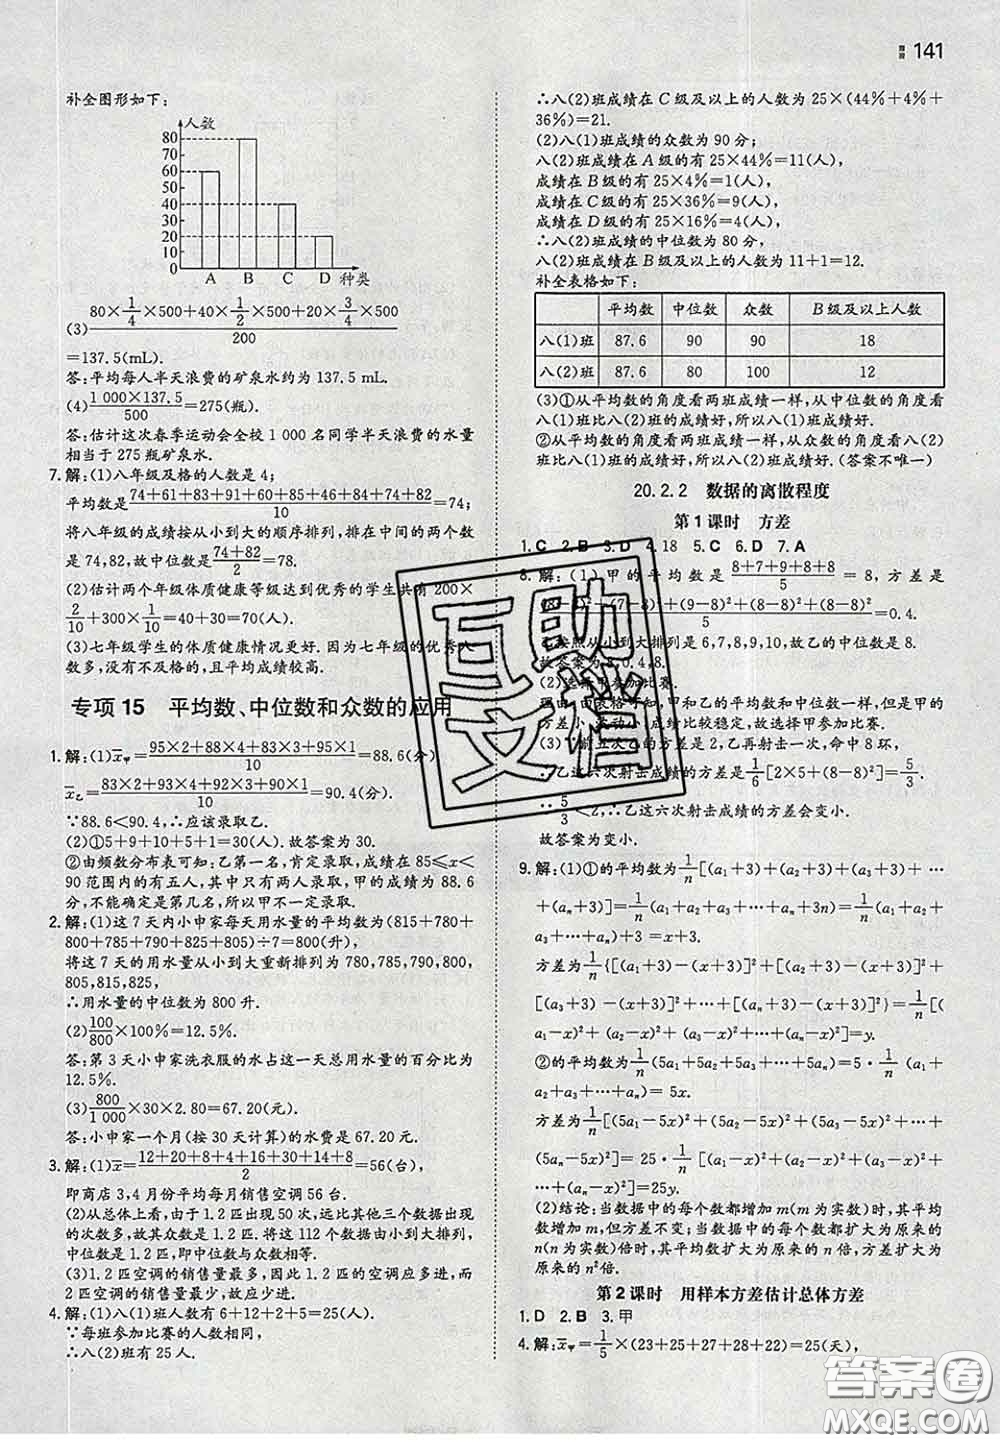 141
补全图形如下:
人数
80
70
60
50
40
30
20
10
0
A B C D 种类
(3) (80×1/4×500+40×1/2×500+20×3/4×500)/200
=137.5(mL).
答:平均每人半天浪费的矿泉水约为 137.5 mL.
(4) (1 000×137.5)/500=275(瓶).
答:估计这次春季运动会全校 1 000 名同学半天浪费的水量
相当于 275 瓶矿泉水.
7. 解:(1)八年级及格的人数是 4;
平均数=(74+61+83+91+60+85+46+84+74+82)/10=74;
将八年级的成绩按从小到大的顺序排列,排在中间的两个数
是 74,82,故中位数是(74+82)/2=78.
(2)估计两个年级体质健康等级达到优秀的学生共有 200×
2/10+300×1/10=40+30=70(人).
(3)七年级学生的体质健康情况更好.因为七年级的优秀人
数多,没有不及格的,且平均成绩较高.
专项 15 平均数、中位数和众数的应用
1. 解:(1)x̄甲=(95×2+88×4+83×3+95×1)/10=88.6(分)
x̄乙=(83×2+93×4+92×3+90×1)/10=90.4(分).
∵88.6<90.4,∴应该录取乙.
(2)①5+9+10+5+1=30(人). 故答案为 30.
②由频数分布表可知:乙第一名,肯定录取,成绩在 85≤x<
90 范围内的有五人,其中只有两人录取,甲的成绩为 88.6
分,不能确定是第几名,所以甲不一定录取.
2. 解:(1)这 7 天内小申家每天用水量的平均数为(815+780+
800+785+790+825+805)÷7=800(升),
将这 7 天的用水量从小到大重新排列为 780,785,790,800,
805,815,825,
∴用水量的中位数为 800 升.
(2) 100/800×100%=12.5%.
答:第 3 天小申家洗衣服的水占这一天总用水量的百分比为
12.5%.
(3) 800/1 000×30×2.80=67.20(元).
答:小申家一个月(按 30 天计算)的水费是 67.20 元.
3. 解:(1)x̄=(12+20+8+4+16+30+14+8)/2=56(台),
即商店 3,4 月份平均每月销售空调 56 台.
(2)从总体上看,由于 1.2 匹出现 50 次,远比其他三个数据出现
的次数多,故其众数为 1.2 匹;将这 112 个数据由小到大排列,
中位数是 1.2 匹;即中位数与众数相等.
(3)1.2 匹空调的销售量最大,所以 1.2 匹的空调应多进,而
2 匹空调的销售量较少,故应少进.
4. 解:(1)八(1)班人数有 6+12+2+5=25(人).
∵每班参加比赛的人数相同,
∴八(2)班有 25 人.
∴八(2)班成绩在 C 级及以上的人数为 25×(44%+4%+
36%)=21.
(2)八(1)班成绩的众数为 90 分;
八(2)班成绩在 A 级的有 25×44%=11(人),
成绩在 B 级的有 25×4%=1(人),
成绩在 C 级的有 25×36%=9(人),
成绩在 D 级的有 25×16%=4(人),
∴八(2)班成绩的中位数为 80 分,
八(2)班成绩在 B 级及以上的人数为 11+1=12.
补全表格如下:
平均数 中位数 众数 B 级及以上人数
八(1)班 87.6 90 90 18
八(2)班 87.6 80 100 12
(3)①从平均数的角度看两班成绩一样,从中位数的角度看
八(1)班比八(2)班的成绩好,所以八(1)班成绩好.
②从平均数的角度看两班成绩一样,从众数的角度看八(2)
班比八(1)班的成绩好,所以八(2)班成绩好.(答案不唯一)
20.2.2 数据的离散程度
第 1 课时 方差
1. C 2. B 3. D 4. 18 5. C 6. D 7. A
8. 解:(1)甲的平均数是(8+7+9+8+8)/5=8,方差是
+(7-8)²+(9-8)²+(8-8)²+(8-8)²)/5=0.4.
乙按照从小到大排列是 6,7,8,9,10,故乙的中位数是 8.
故答案为 8,0.4,8.
(2)选择甲参加比赛.
理由:由表格可知,甲和乙的平均数和中位数一样,但是甲的
方差小,波动小,成绩比较稳定,故选择甲参加比赛.
(3)∵前五次乙的方差是 2,乙再射击一次,命中 8 环,
∴乙这六次射击成绩的方差是1/6[2×5+(8-8)²]=5/3.
∵5/3<2,∴乙这六次射击成绩的方差会变小.
故答案为变小.
9. 解:(1)①的平均数为1/n[(a₁+3)+(a₂+3)+(a₃+3)+…
+(aₙ+3)]=1/n(a₁+a₂+a₃+…+aₙ+3n)=1/n(a₁+a₂+
a₃+…+aₙ)+3=x+3.
方差为1/n{[(a₁+3)-(x+3)]²+[(a₂+3)-(x+3)]²+
[(a₃+3)-(x+3)]²+…+[(aₙ+3)-(x+3)]²}=1/n[(
a₁-x)²+(a₂-x)²+(a₃-x)²+…+(aₙ-x)²]=y.
②的平均数为1/n(5a₁+5a₂+5a₃+…+5aₙ)=5·1/n(a₁+
a₂+a₃+…+aₙ)=5x.
方差为1/n[(5a₁-5x)²+(5a₂-5x)²+(5a₃-5x)²+…+
(5aₙ-5x)²]=25·1/n[(a₁-x)²+(a₂-x)²+(a₃-x)²+…
+(aₙ-x)²]=25y.
(2)结论:当数据中的每个数都增加 m(m 为实数)时,其平均
数增加 m,但方差不变;当数据中的每个数都扩大为原来的
n(n 为实数)倍时,其平均数扩大为原来的 n 倍,方差扩大为
原来的 n²倍.
第 2 课时 用样本方差估计总体方差
1. D 2. B 3. 甲
4. 解:x̄甲=1/5×(23+25+27+28+22)=25(天),
互助
文档
答案圈
MXQE.COM